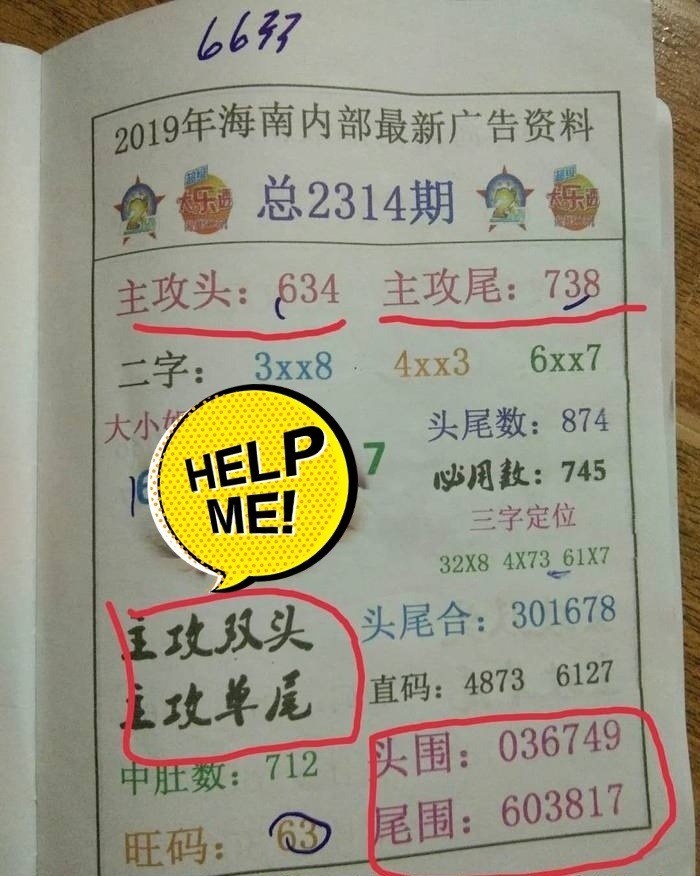 6633
2019年海南内部最新广告资料
总2314期
超级
大乐透
超级
大乐透
主攻头：634 主攻尾：738
二字： 3xx8 4xx3 6xx7
大小
头尾数：874
HELP
ME!
7
必用数：745
三字定位
32X8 4X73 61X7
主攻双头
头尾合：301678
主攻单尾
直码：4873 6127
中肚数：712
头围：036749
旺码：63
尾围：603817